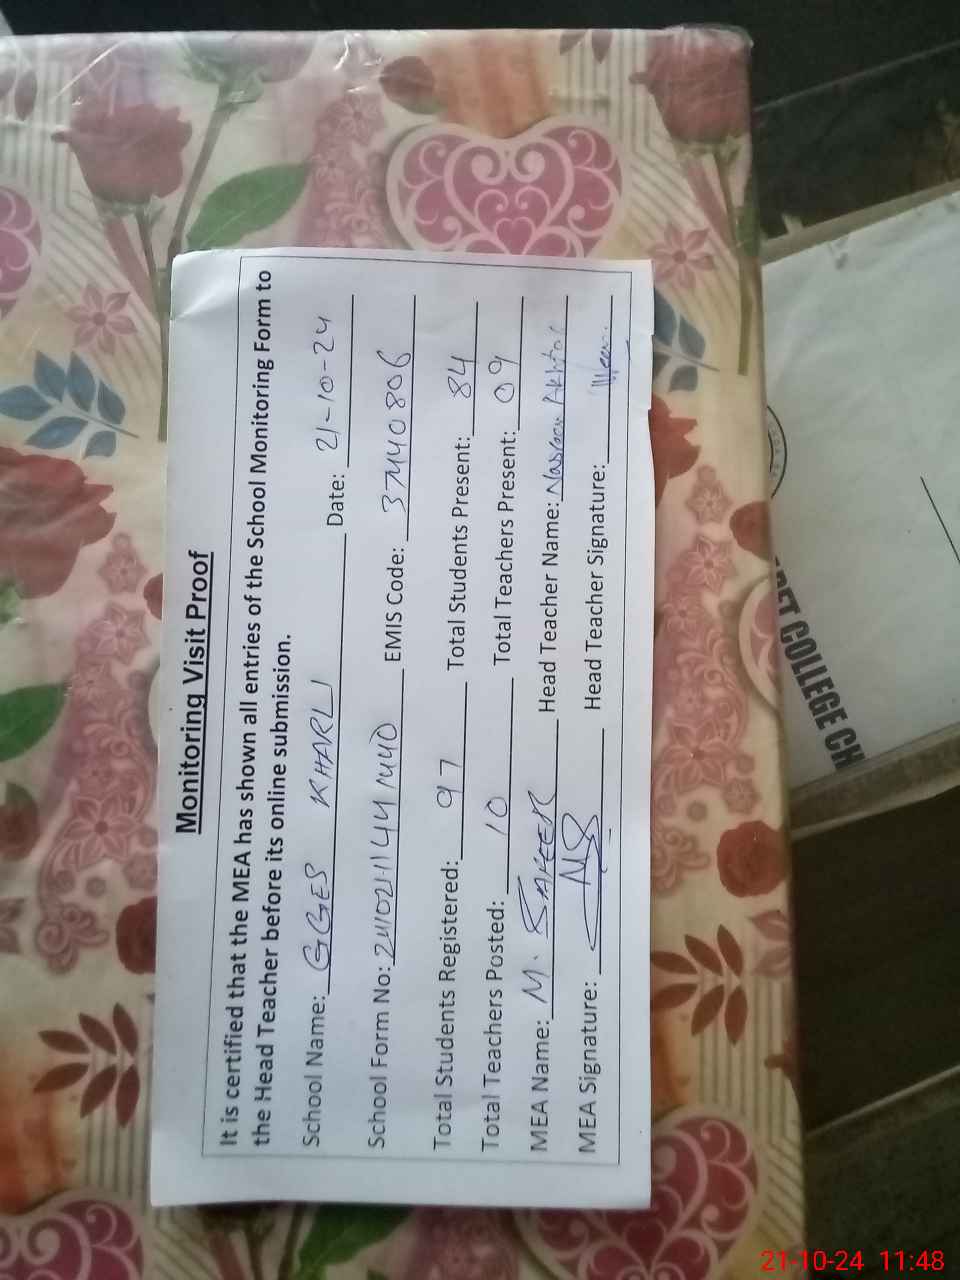 Monitoring Visit Proof
It is certified that the MEA has shown all entries of the School Monitoring Form to
the Head Teacher before its online submission.
School Name: GGES KHARLI Date: 21-10-24
School Form No: EMIS Code: 37440806
Total Students Registered: 97 Total Students Present: 84
Total Teachers Posted: 10 Total Teachers Present: 09
MEA Name: M. SAFEER Head Teacher Name: Akhtar
MEA Signature: Head Teacher Signature:
COLLEGE CH
21-10-24 11:48